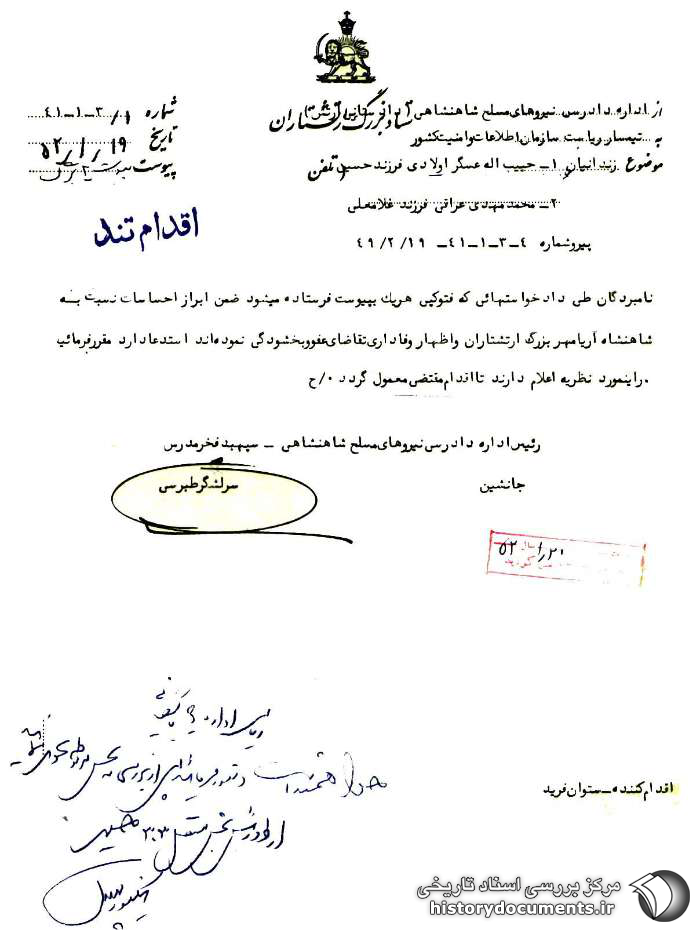 ستاد بزرگ ارتشتاران
از اداره دادرسی نیروهای مسلح شاهنشاهی
به تیمسار ریاست سازمان اطلاعات و امنیت کشور
موضوع زندانیان ۱- حبیب اله عسگر اولادی فرزند حسین تلفن
۲- محمد مهدی عراقی فرزند غلامعلی
شماره ۴۱-۱-۳
تاریخ ۵۲/۱/۱۹
پیوست
اقدام تند
پیرو شماره ۴-۳-۱-۴۱- ۴۹/۲/۱۹
نامبردگان طی دادخواستهائی که فتوکپی هریک بپیوست فرستاده میشود ضمن ابراز احساسات نسبت به
شاهنشاه آریامهر بزرگ ارتشتاران و اظهار وفاداری تقاضای عفو و بخشودگی نموده‌اند استدعا دارد مقرر فرمائید
راینمورد نظریه اعلام دارند تا اقدام مقتضی معمول گردد ۰/ح
رئیس اداره دادرسی نیروهای مسلح شاهنشاهی - سپهبد فخر مدرس
جانشین سرلشگر طبرسی
۵۲/۱/۲۰
اقدام کننده - ستوان فرید
مرکز بررسی اسناد تاریخی
historydocuments.ir